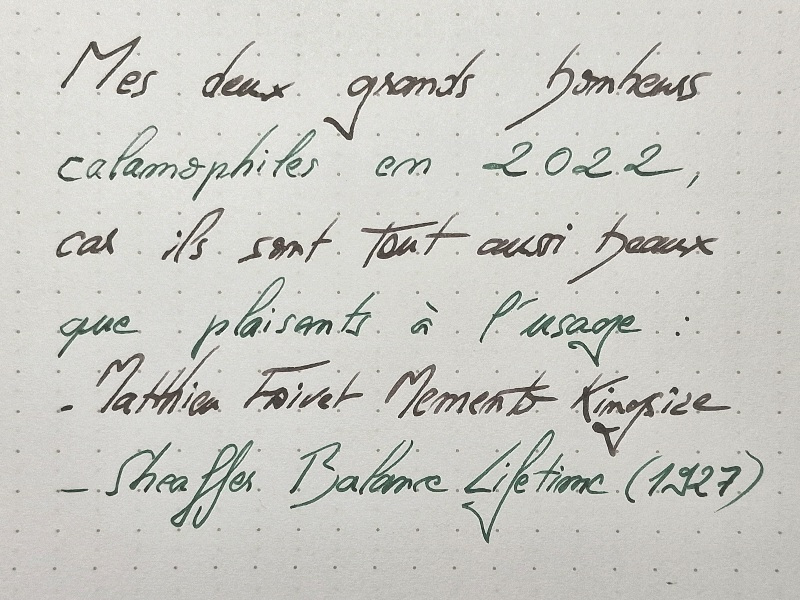 Mes deux grands bonheurs
calamophiles en 2022,
car ils sont tout aussi beaux
que plaisants à l'usage :
- Matthieu Faivet Memento Kingsize
- Sheaffer Balance Lifetime (1927)